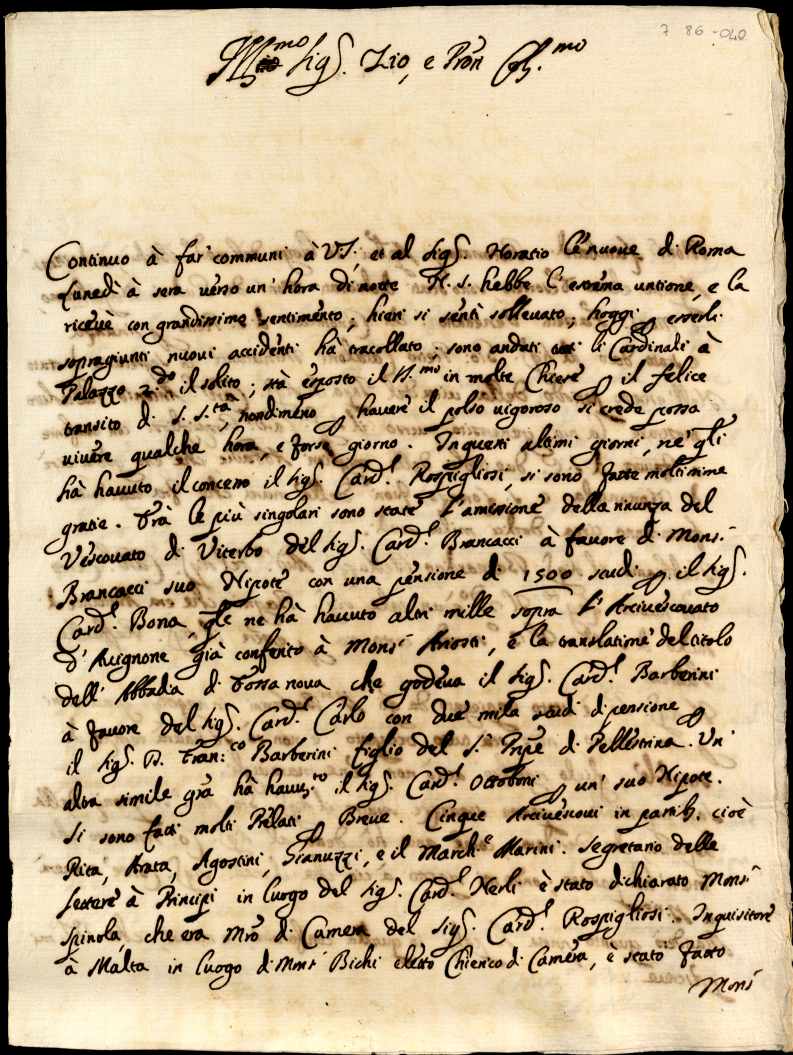 7 86-040
Ill.mo Sig.r Zio, e Pron Col.mo
Continuo à far communi à V.S. et al Sig.r Horatio le nuove di Roma
Lunedì à sera verso un' hora di notte N. S. hebbe l'estrema untione, e la
ricevè con grandissimo sentimento; hieri si sentì sollevato; hoggi p esserli
sopragiunti nuovi accidenti hà tracollato; sono andati tutti li Cardinali à
Palazzo 2.do il solito; stà esposto il S.mo in molte Chiese p il felice
transito di S. S.tà, nondimeno p havere il polso vigoroso si crede possa
vivere qualche hora, e forse giorno. In questi ultimi giorni, ne' gli
hà havuto il concerto il Sig.r Card.l Rospigliosi, si sono fatte moltissime
gratie. Trà le più singolari sono state l'amissione della rinunza del
Vescovato di Viterbo del Sig.r Card.l Brancacci à favore di Mons.r
Brancacci suo Nipote con una pensione di 1500 scudi p il Sig.r
Card.l Bona, qle ne hà havuto altri mille sopra l'Arcivescovato
d'Avignone già conferito à Mons.r Ariosti, e la translatione del titolo
dell' Abbadia di Fossa nova che godeva il Sig.r Card.l Barberini
à favore del Sig.r Card.l Carlo con due mila scudi di pensione p
il Sig.r D. Fran.co Barberini figlio del S.r Pnpe di Pellestrina. Un'
altra simile gra hà havuto il Sig.r Card.l Ottoboni p un' suo Nipote.
Si sono fatti molti Prelati p Breve. Cinque Arcivescovi in partib. cioè
Rita, Arata, Agostini, Gianuzzi, e il March.e Marini. Segretario delle
lettere à Principi in luogo del Sig.r Card.l Nerli è stato dichiarato Mons.r
Spinola, che era Mro di Camera del Sig.r Card.l Rospigliosi. Inquisitore
à Malta in luogo di Mons.r Bichi eletto Chierico di Camera, è stato fatto
Mons.r